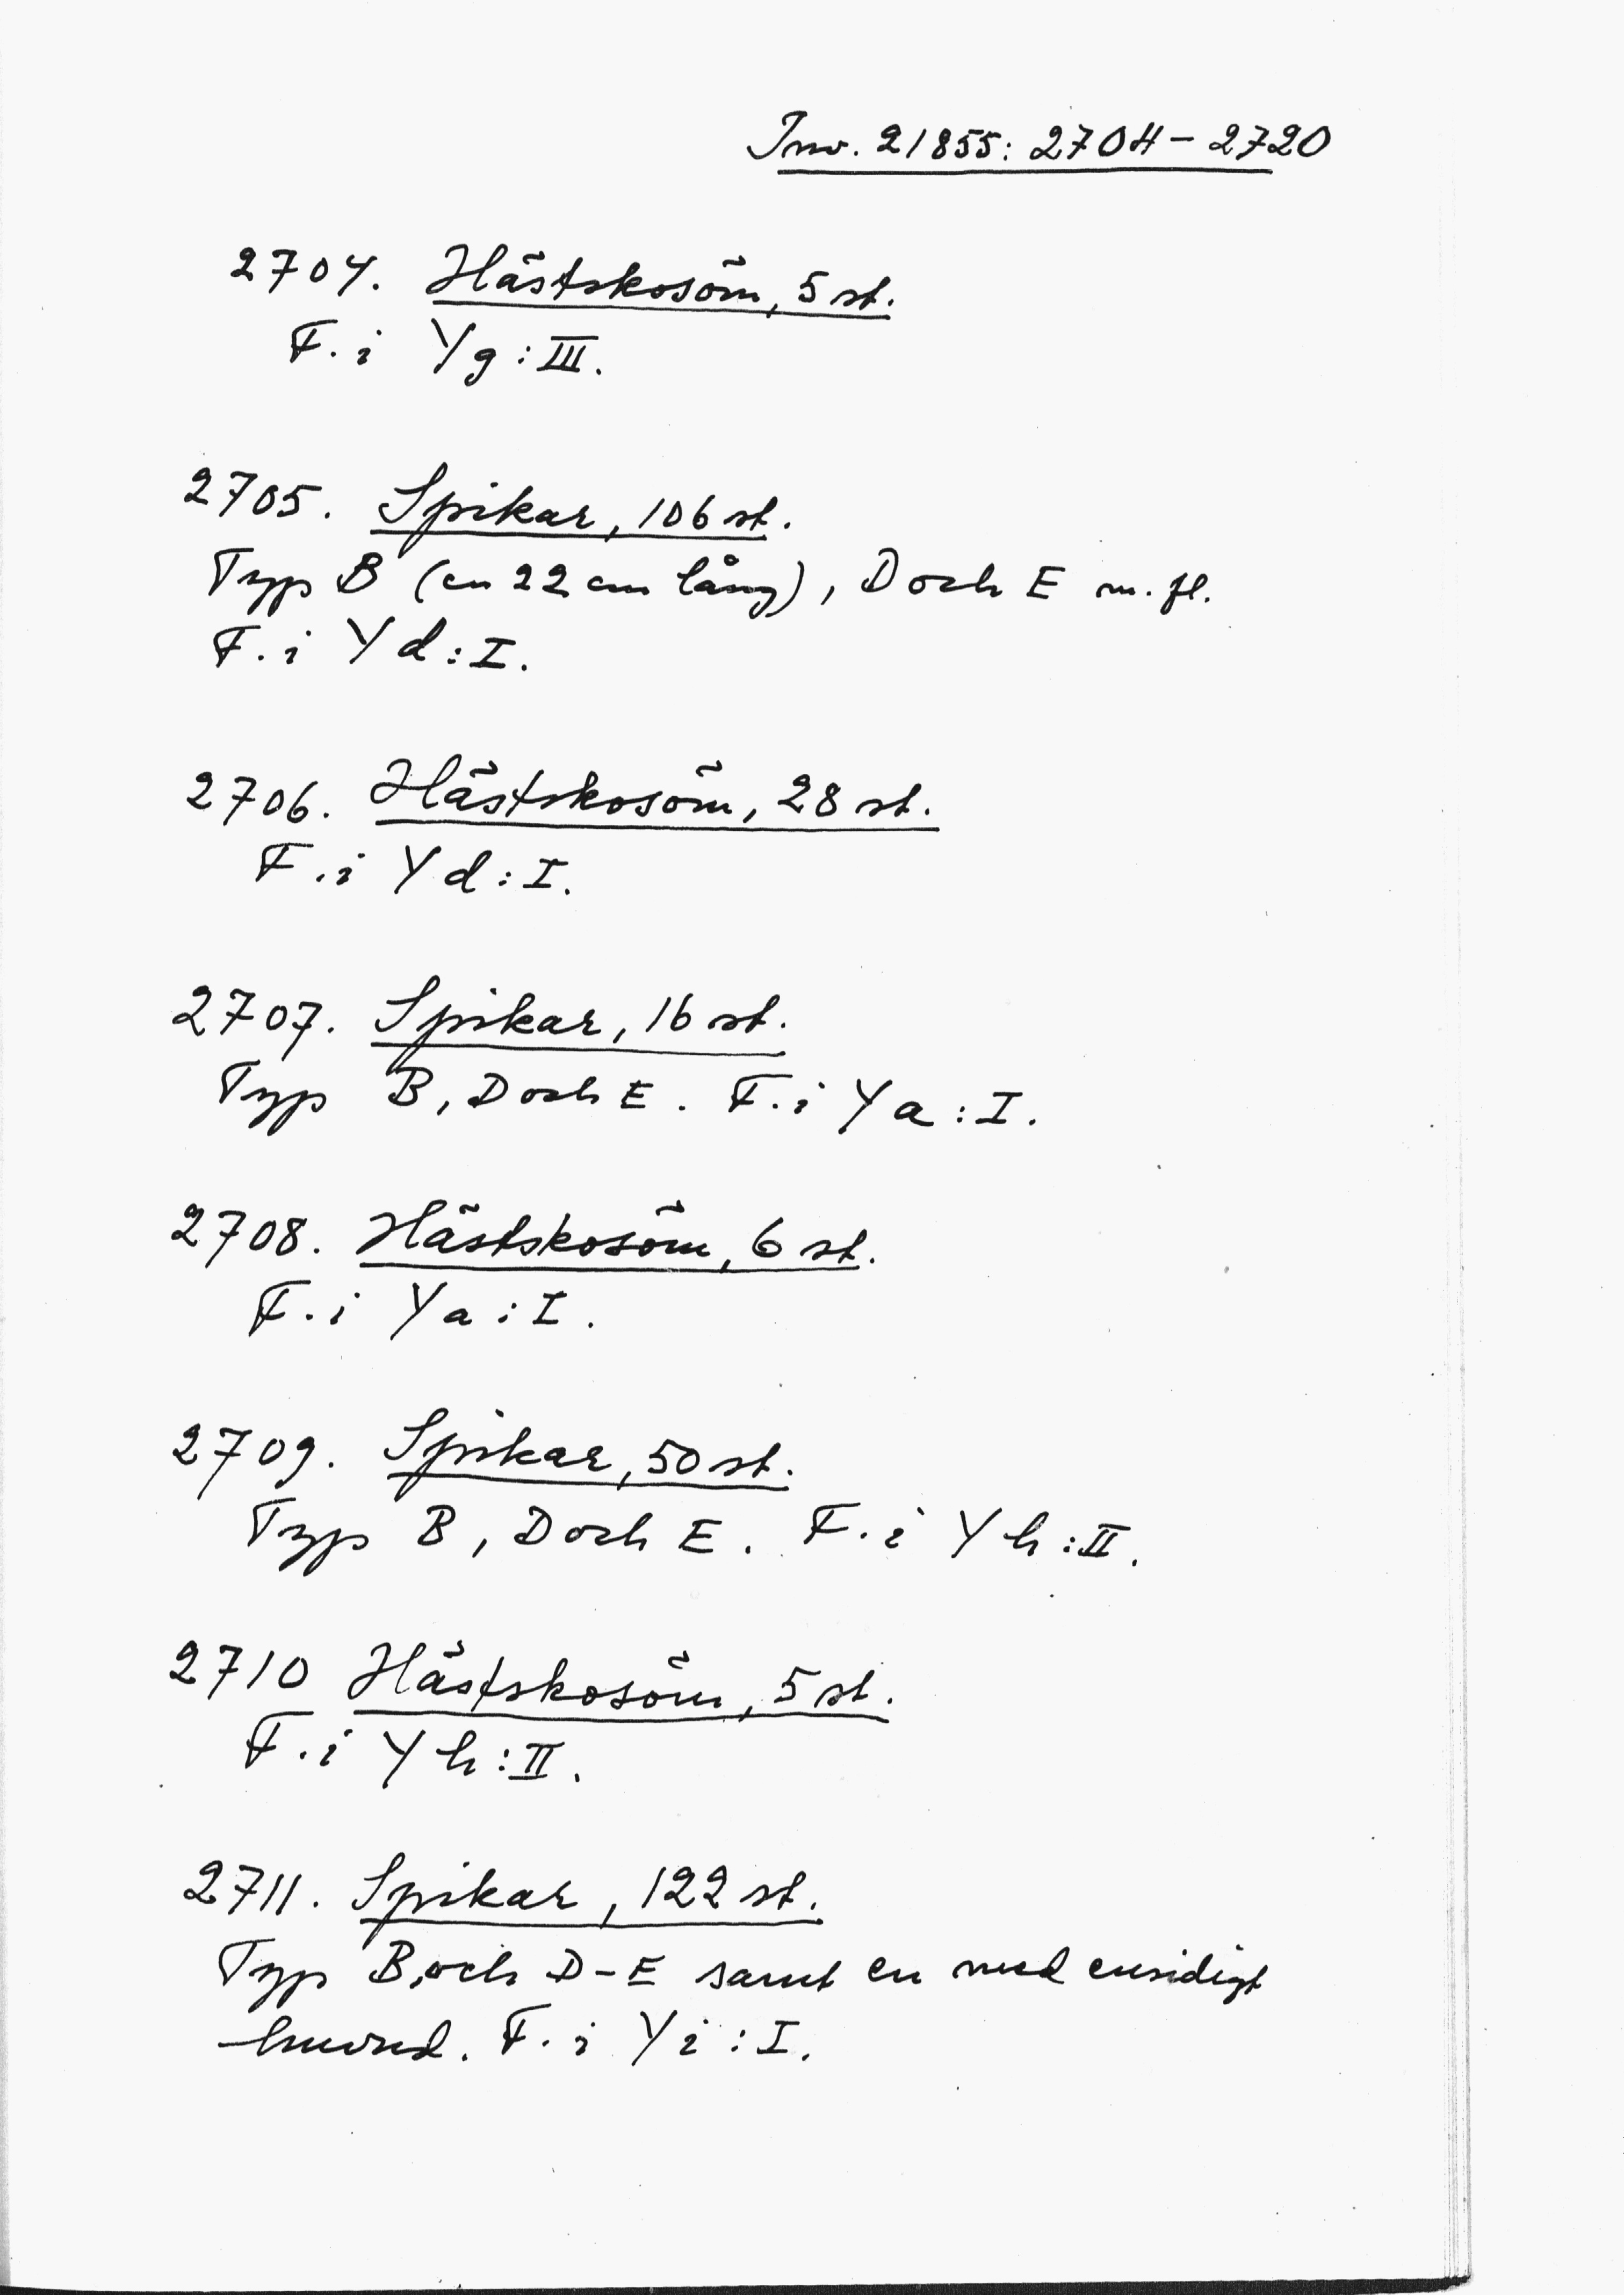 Inv. 21855: 2704-2720
2704. Hästskosöm, 5 st.
F. i Yg:III.
2705. Spikar, 106 st.
Typ B (en 22 cm lång), D och E m. fl.
F. i Yd:I.
2706. Hästskosöm, 28 st.
F. i Yd:I.
2707. Spikar, 16 st.
Typ B, D och E. F. i Ya:I.
2708. Hästskosöm, 6 st.
F. i Ya:I.
2709. Spikar, 50 st.
Typ B, D och E. F. i Yh:II.
2710 Hästskosöm, 5 st.
F. i Yh:II.
2711. Spikar, 122 st.
Typ B, och D-E samt en med ensidigt
huvud. F. i Yi:I.